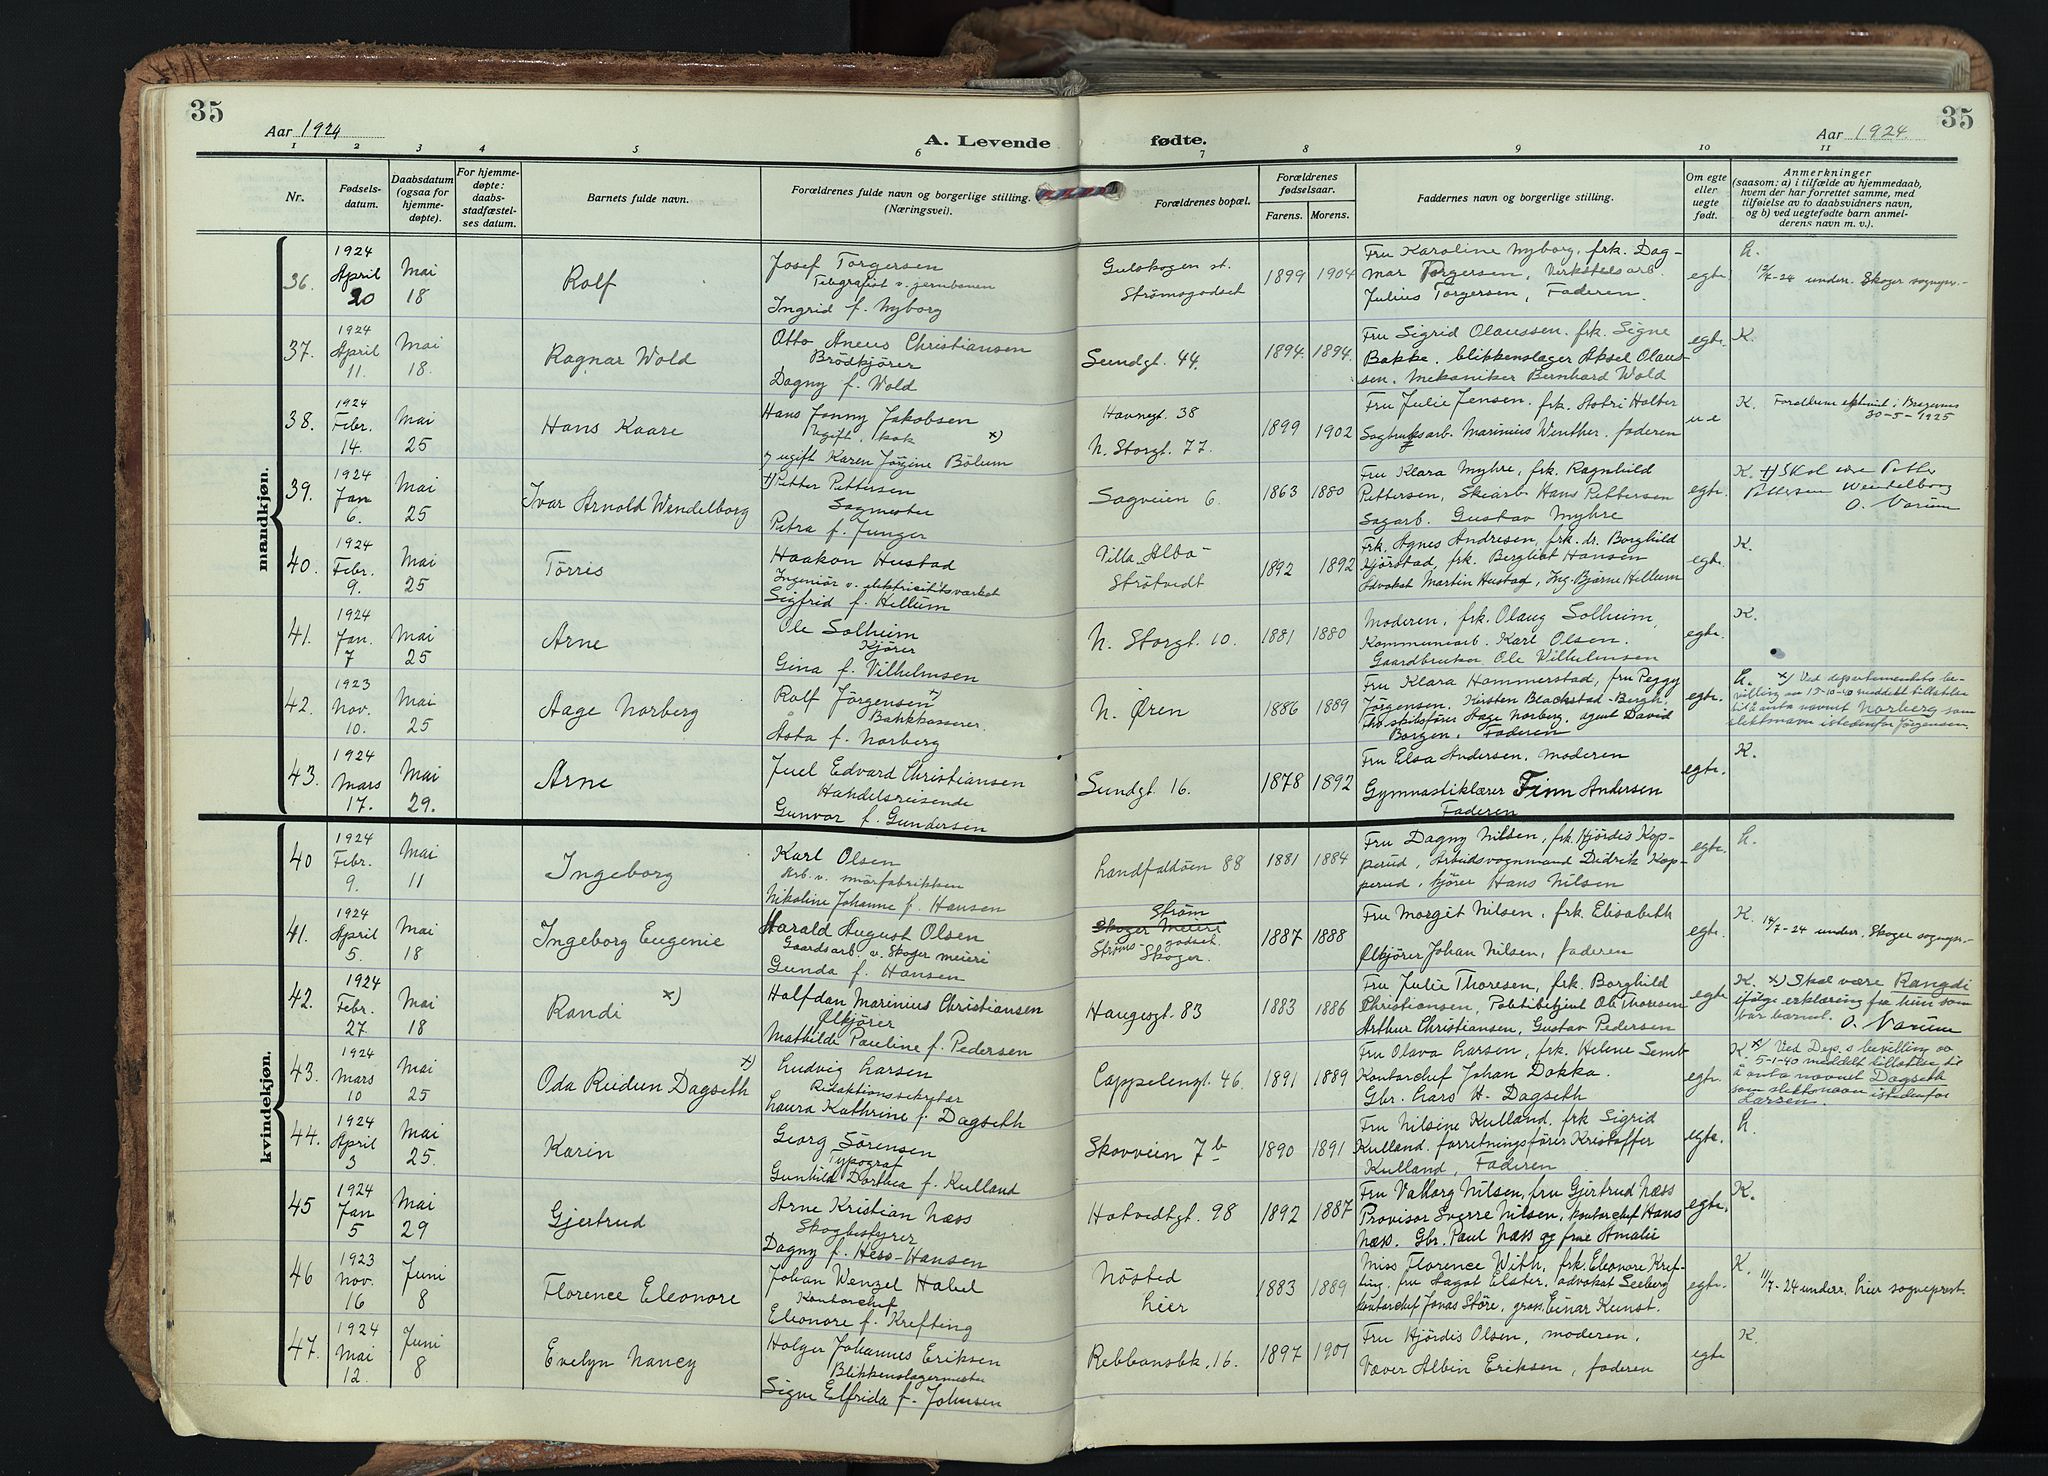 35
Aar 1924
A. Levende fødte.
Aar 1924
35
1 2 3 4 5 6 7 8 9 10 11
Nr.
Fødsels-
datum.
Daabsdatum
(ogsaa for
hjemme-
døpte).
For hjemme-
døpte:
daabs-
stadfæstel-
ses datum.
Barnets fulde navn.
Forældrenes fulde navn og borgerlige stilling.
(Næringsvei).
Forældrenes bopæl.
Forældrenes
fødselsaar.
Farens. Morens.
Faddernes navn og borgerlige stilling.
Om egte
eller
uegte
født.
Anmerkninger
(saasom: a) i tilfælde av hjemmedaab,
hvem der har forrettet samme, med
tilføielse av to daabsvidners navn,
og b) ved uegtefødte barn anmel-
derens navn m. v.).
mandkjøn.
36.
1924
April
20
Mai
18
Rolf
Josef Torgersen
Telegrafist v. jernbanen
Ingrid f. Nyborg
Gulskogen st.
Strømsgodset
1899 1904
Fru Karoline Nyborg, frk. Dag-
mar Torgersen, Verkstedsarb.
Julius Torgersen, Faderen.
egte
L.
12/7-24 underr. Skoger sognepr.-
37.
1924
April
11.
Mai
18.
Ragnar Wold
Otto Aneus Christiansen
Brödkjører
Dagny f. Wold
Sundgt. 44.
1894. 1894.
Fru Sigrid Olaussen, frk. Signe
Bakke, blikkenslager Aksel Olaus-
sen. Mekaniker Bernhard Wold
egte.
K.
38.
1924
Febr.
14.
Mai
25
Hans Kaare
Hans Jonny Jakobsen
Ugift, kok x)
og ugift Karen Jørgine Bölum
Havnegt. 38
N. Storgt. 77.
1899 1902
Fru Julie Jensen, frk. Astri Holter
Sagbruksarb. Marinius Wenther, faderen
u.e
K. Foreldrene ektevid i Bragernes
30-5-1925
39.
1924
Jan
6.
Mai
25
Ivar Arnold Wendelborg
+) Petter Pettersen
Sagmester
Petra f. Junger
Sagveien 6.
1863 1880
Fru Klara Myhre, frk. Ragnhild
Pettersen, Skiarb. Hans Pettersen
Sagarb. Gustav Myhre
egte.
K. +) Skal være Petter
Pettersen Wendelborg
O. Varum
40.
1924
Febr.
9.
Mai
25
Tørris
Haakon Hustad
Ingeniør v. elektricitetsverket
Sigfrid f. Hellum
Villa "Alba"
Strøtvedt
1892 1892
Frk. Agnes Andresen, frk. dr. Borghild
Kjørstad, frk. Bergliot Hansen
advokat Martin Hustad, Ing. Bjarne Hellum
egte.
K.
41.
1924
Jan.
7
Mai
25
Arne
Ole Solheim
Kjører
Gina f. Vilhelmsen
N. Storgt. 10.
1881 1880
Moderen, frk. Olaug Solheim,
Kommunearb. Karl Olsen.
Gaardbruker Ole Vilhelmsen
egte.
K.
42.
1923
Nov.
10.
Mai
25
Aage Norberg
Rolf Jörgensen x)
Bankkasserer.
Åsta f. Norberg
N. Øren
1886 1889
Fru Klara Hammerstad, fru Peggy
Jørgensen. Kirsten Blackstad-Bergh,
skibsfører Aage Norberg, agent David
Borgen. Faderen
egte.
L. x) Ved departementets be-
villing av 15-10-40 meddelt tillatelse
til å anta navnet Norberg som
slektsnavn istedenfor Jørgensen.
43.
1924
Mars
17.
Mai
29.
Arne
Juel Edvard Christiansen
Handelsreisende
Gunvor f. Gundersen
Sundgt. 16.
1878 1892
Fru Elsa Andersen, moderen
Gymnastiklærer Finn Andersen
Faderen
egte.
K.
kvindekjøn.
40
1924
Febr.
9.
Mai
11
Ingeborg
Karl Olsen
Arb. v. smörfabrikken
Nikoline Johanne f. Hansen
Landfaldöen 88
1881 1884
Fru Dagny Nilsen, frk. Hjördis Kop-
perud, Arbeidsvognmand Didrik Kop-
perud, kjører Hans Nilsen
egte.
L.
41.
1924
April
5.
Mai
18
Ingeborg Eugenie
Harald August Olsen
Gaardsarb. v. Skoger meieri
Gunda f. Hansen
Strøm
Skoger Meieri
Strøms- godset.
Skoger.
1887 1888
Fru Margit Nilsen, frk. Elisabeth
Ølkjører Johan Nilsen, faderen
egte.
K. 14/7-24 underr. Skoger sognepr.-
42.
1924
Febr.
27.
Mai
18
Randi x)
Halfdan Marinius Christiansen
Ølkjører
Mathilde Pauline f. Pedersen
Haugesgt. 83
1883 1886
Fru Julie Thoresen, frk. Borghild
Christiansen, Politibetjent Ole Thoresen
Arthur Christiansen, Gustav Pedersen
egte
K. x) Skal være Rangdi
ifølge erklæring fra hun som
bar barnet. O. Varum
43.
1924
Mars
10
Mai
25
Oda Reidun Dagseth x)
Ludvig Larsen
Redaktionssekretær
Laura Kathrine f. Dagseth
Cappelengt. 46.
1891 1889
Fru Olava Larsen, frk. Helene Semb
Kontorchef Johan Dokka.
Gbr. Lars H. Dagseth
egte.
K. x) Ved Dep.s bevilling av
5-1-40 meddelt tillatelse til
å anta navnet Dagseth
som slektsnavn istedenfor
Larsen.
44.
1924
April
3
Mai
25.
Karin
Georg Sörensen
Typograf
Gunhild Dorthea f. Kulland
Skovveien 7b
1890 1891
Fru Nilsine Kulland, frk Sigrid
Kulland, forretningsfører Kristoffer
Kulland, Faderen
egte.
L.
45
1924
Jan
5
Mai
29
Gjertrud
Arne Kristian Næss
Skogbestyrer
Dagny f. Hess-Hansen
Hotvedtgt. 98
1892 1887
Fru Valborg Nilsen, fru Gjertrud Næss
Provisor Sverre Nilsen, kontorchef Hans
Næss. Gbr. Paul Næss og frue Amalie
egte.
K.
46
1923
Nov.
16
Juni
8
Florence Eleonore
Johan Wenzel Habel
Kontorchef
Eleonore f. Krefting
Nøsted
Lier
1883 1889
Miss Florence With, frk. Eleonore Kref-
ting, fru Hagat Elster, advokat Seeberg
kontorchef Jonas Störe, gross. Einar Kunst.
egte.
K.
11/7-24 underr. Lier sogneprest.
47.
1924
Mai
12.
Juni
8
Evelyn Nancy
Holger Johannes Eriksen
Blikkenslagermester
Signe Elfrida f. Johnsen
Rebbansbk. 16.
1897 1901
Fru Hjördis Olsen, moderen,
Væver Albin Eriksen, faderen
egte
K.